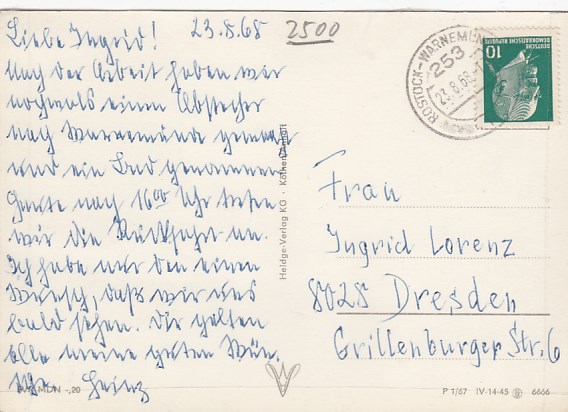 Liebe Ingrid! 23.8.68 2500
Nach der Arbeit haben wir
nochmals einen Abstecher
nach Warnemünde gemacht
und ein Bad genommen
Heute nach 16.00 Uhr treten
wir die Rückfahrt an.
Ich habe nur den einen
Wunsch, daß wir uns
bald sehen. Dir gelten
alle meine guten Wün.
Heinz
ROSTOCK-WARNEMÜN
253
23.8.68
10
DEUTSCHE
DEMOKRATISCHE REPUBLIK
Heldge-Verlag KG · Köthen/Anhalt
Frau
Ingrid Lorenz
8028 Dresden
Grillenburger Str. 6
MDN -,20
P 1/67 IV-14-45 6666